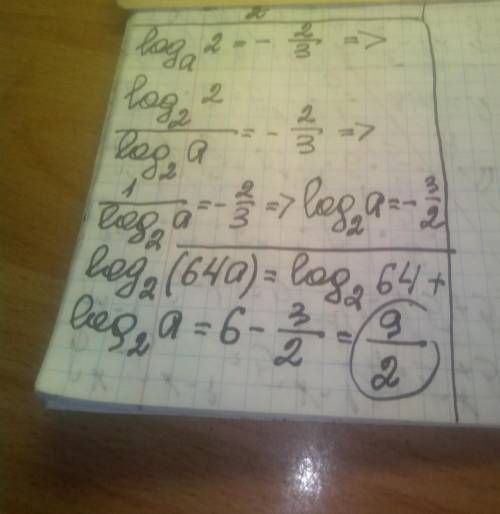 2
logₐ 2 = - 2/3 =>
log₂ 2 / log₂ a = - 2/3 =>
1 / log₂ a = - 2/3 => log₂ a = - 3/2
log₂ (64a) = log₂ 64 +
log₂ a = 6 - 3/2 = 9/2